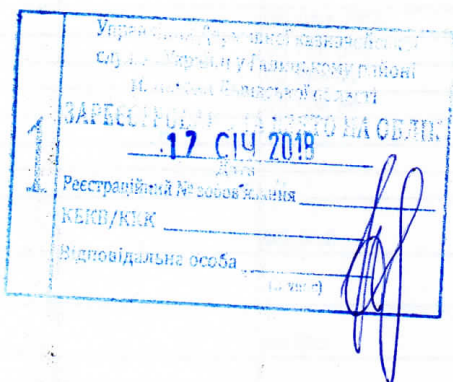 Управління Державної казначейської
служби України у Галицькому районі
м.
області
ЗАРЕЄСТРОВАНО ТА ВЗЯТО НА ОБЛІК
1
17 СІЧ 2018
Дата
Реєстраційний № зобов'язання
КЕКВ/ККК
Відповідальна особа
(підпис)